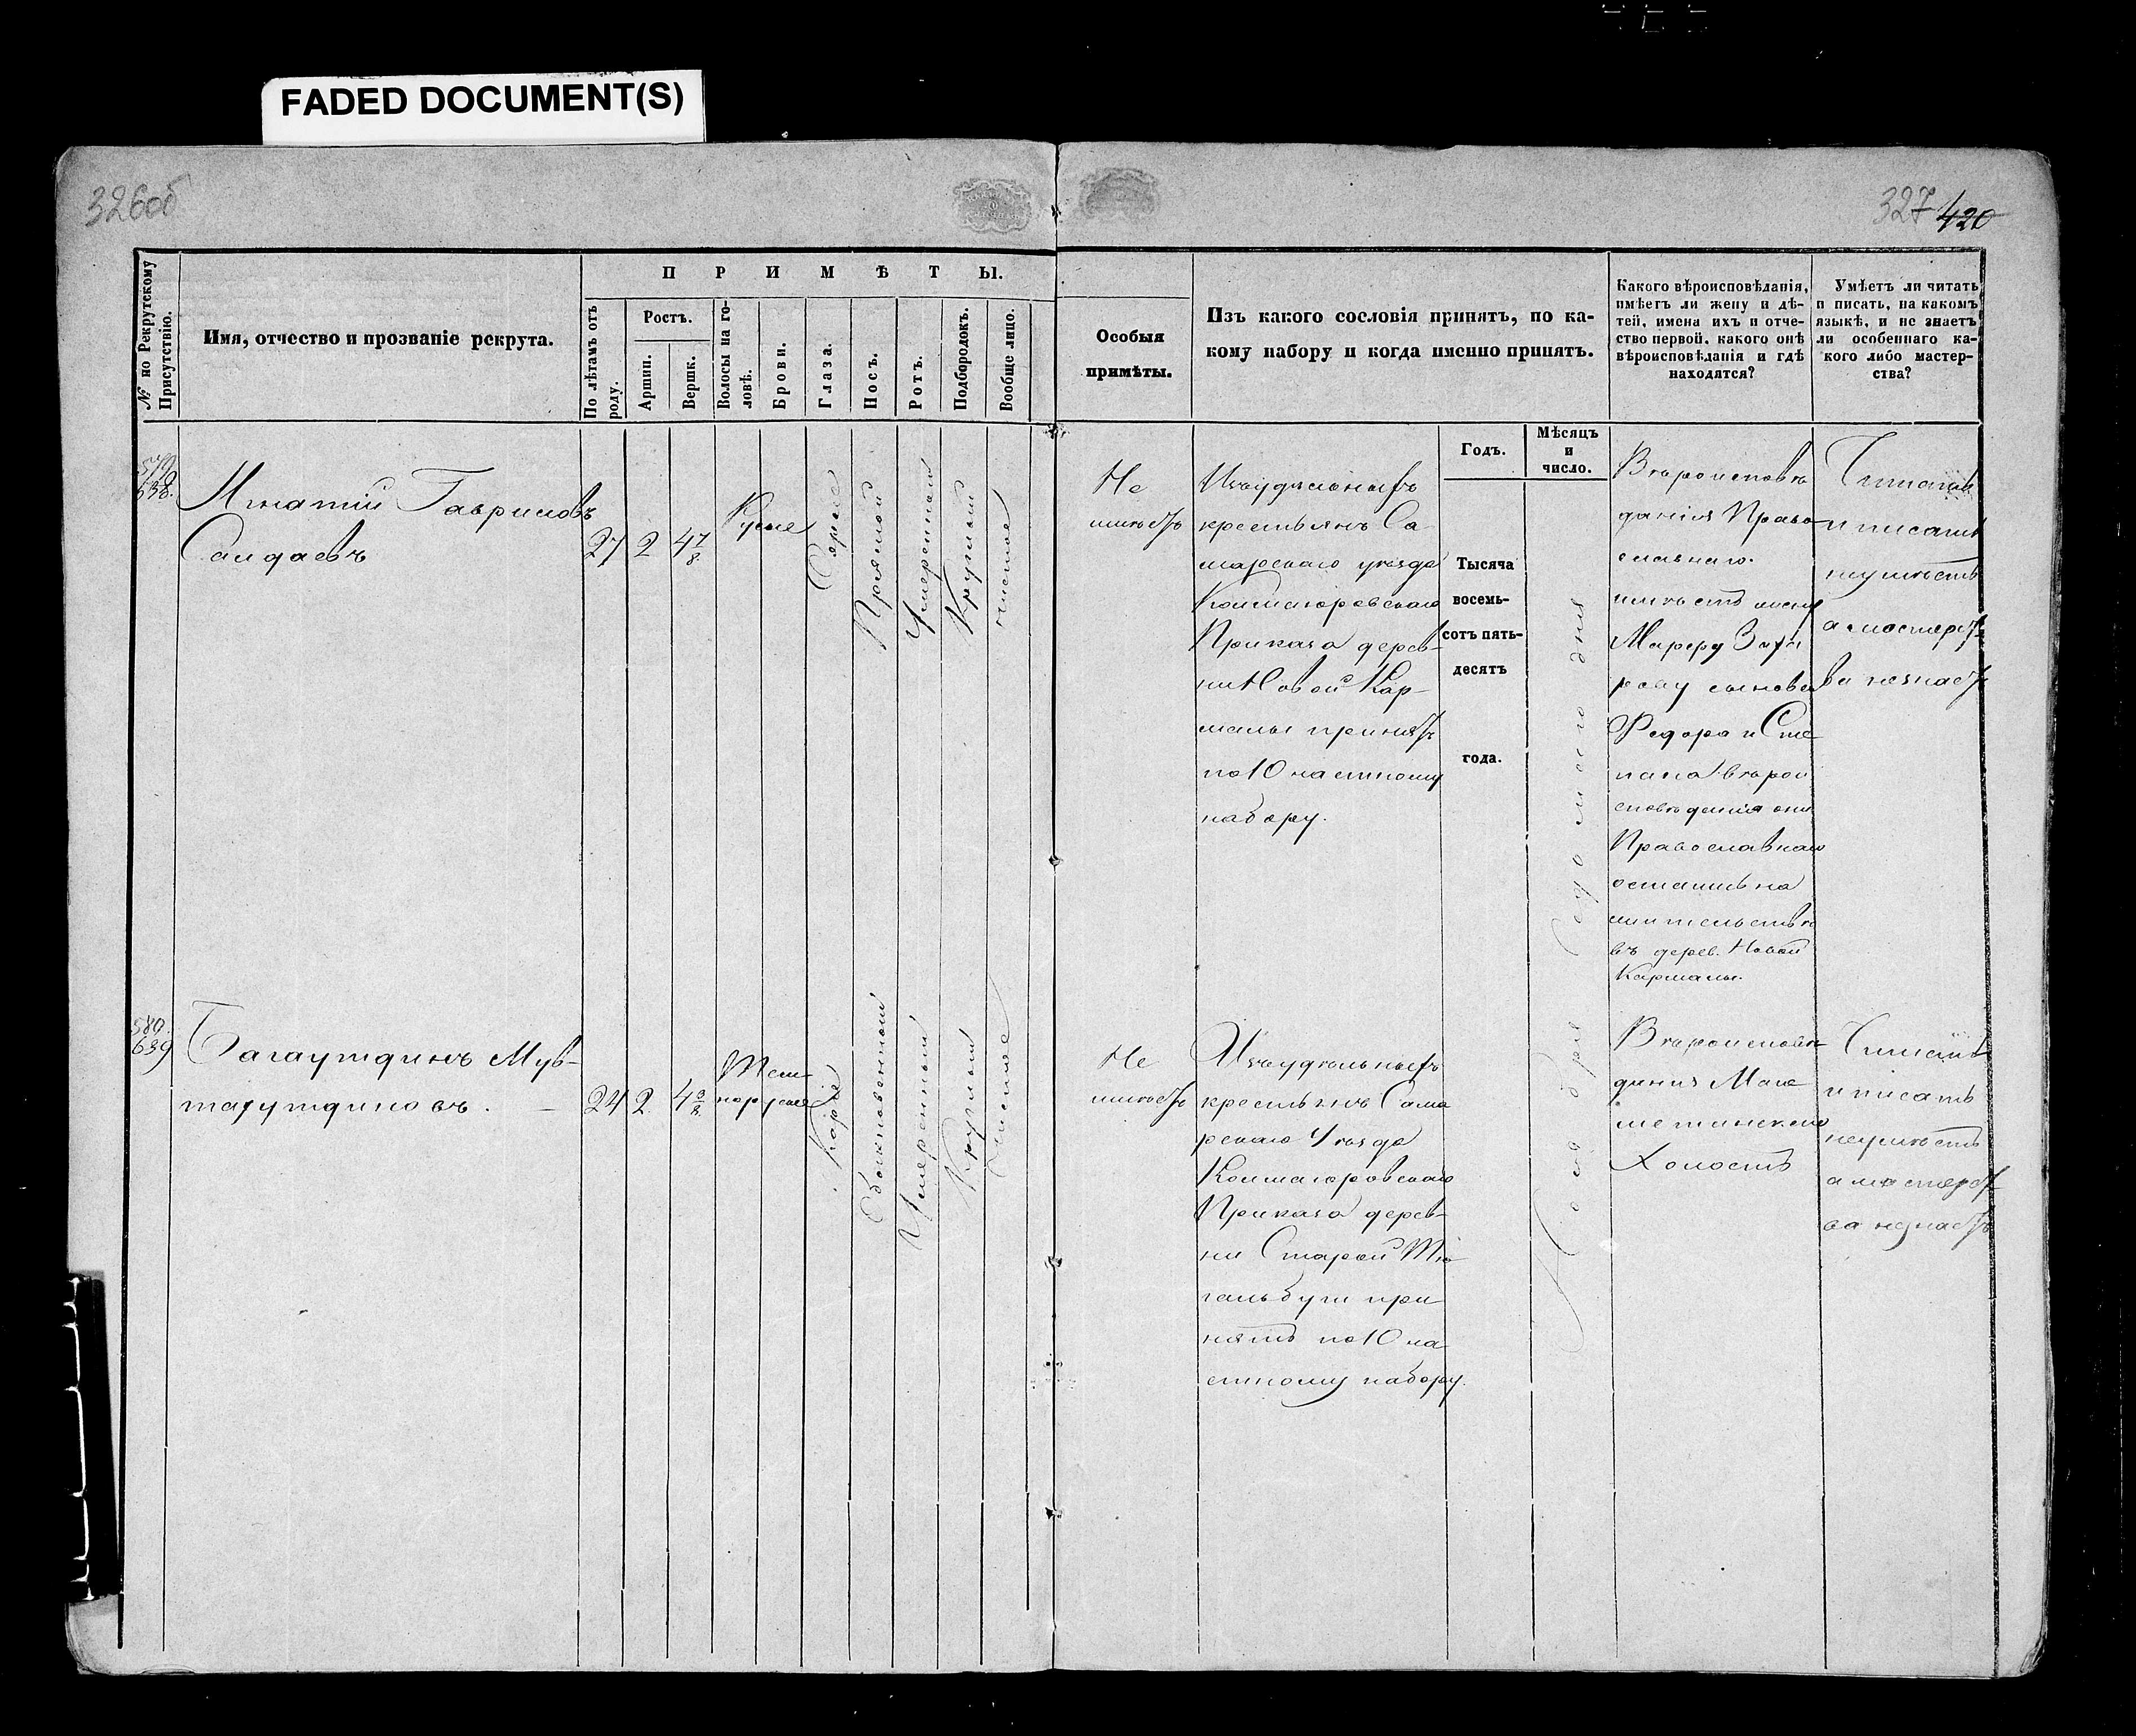 FADED DOCUMENT(S)
326об
327 420
№ по Рекрутскому Присутствію.
Имя, отчество и прозваніе рекрута.
ПРИМѢТЫ.
По лѣтамъ отъ роду.
Ростъ.
Аршин.
Вершк.
Волосы на головѣ.
Брови.
Глаза.
Носъ.
Ротъ.
Подбородокъ.
Вообще лицо.
Особыя
примѣты.
Изъ какого сословія принятъ, по ка-
кому набору и когда именно принятъ.
Годъ.
Мѣсяцъ
и
число.
Какого вѣроисповѣданія,
имѣетъ ли жену и дѣ-
тей, имена ихъ и отче-
ство первой, какого онѣ
вѣроисповѣданія и гдѣ
находятся?
Умѣетъ ли читать
и писать, на какомъ
языкѣ, и не знаетъ
ли особеннаго ка-
кого либо мастер-
ства?
579
638.
Игнатій Гавриловъ
Саидаевъ
27
2
4 7/8
Русые
Сѣрые
Прямой
Умеренный
Круглый
чистое
Не
имѣетъ
Изъ удѣльныхъ
крестьянъ Са
марскаго уѣзда
Кошмагоровскаго
Приказа дерев-
ни Новой Кар-
малы принятъ
по 10 частному
набору.
Тысяча
восемь-
сотъ пять-
десятъ
года.
Ноября дня
Вѣроисповѣ
данія Право
славнаго.
имѣетъ жену
сыновей
Федора и Сте
пана вѣрои
сповѣданія они
Православнаго
остались на
жительствѣ
въ дерев. Новой
Кармалы.
Читать
и писать
неумѣетъ
а мастерст
ва незнаетъ
580.
639
Багаутдинъ Мув-
тахутдиновъ.
24
2.
4 3/8
Тем-
норусые
Каріе
Обыкновенный
Умеренный
Круглый
чистое
Не
имѣетъ
Изъ удѣльныхъ
крестьянъ Сама
рскаго Уѣзда
Кошмагоровскаго
Приказа дерев-
ни Старой Тю
гальбуги при
нятъ по 10 ча
стному набору.
Вѣроисповѣ
данія Маго
метанскаго
Холостъ
Читать
и писать
неумѣетъ
а мастерст
ва незнаетъ